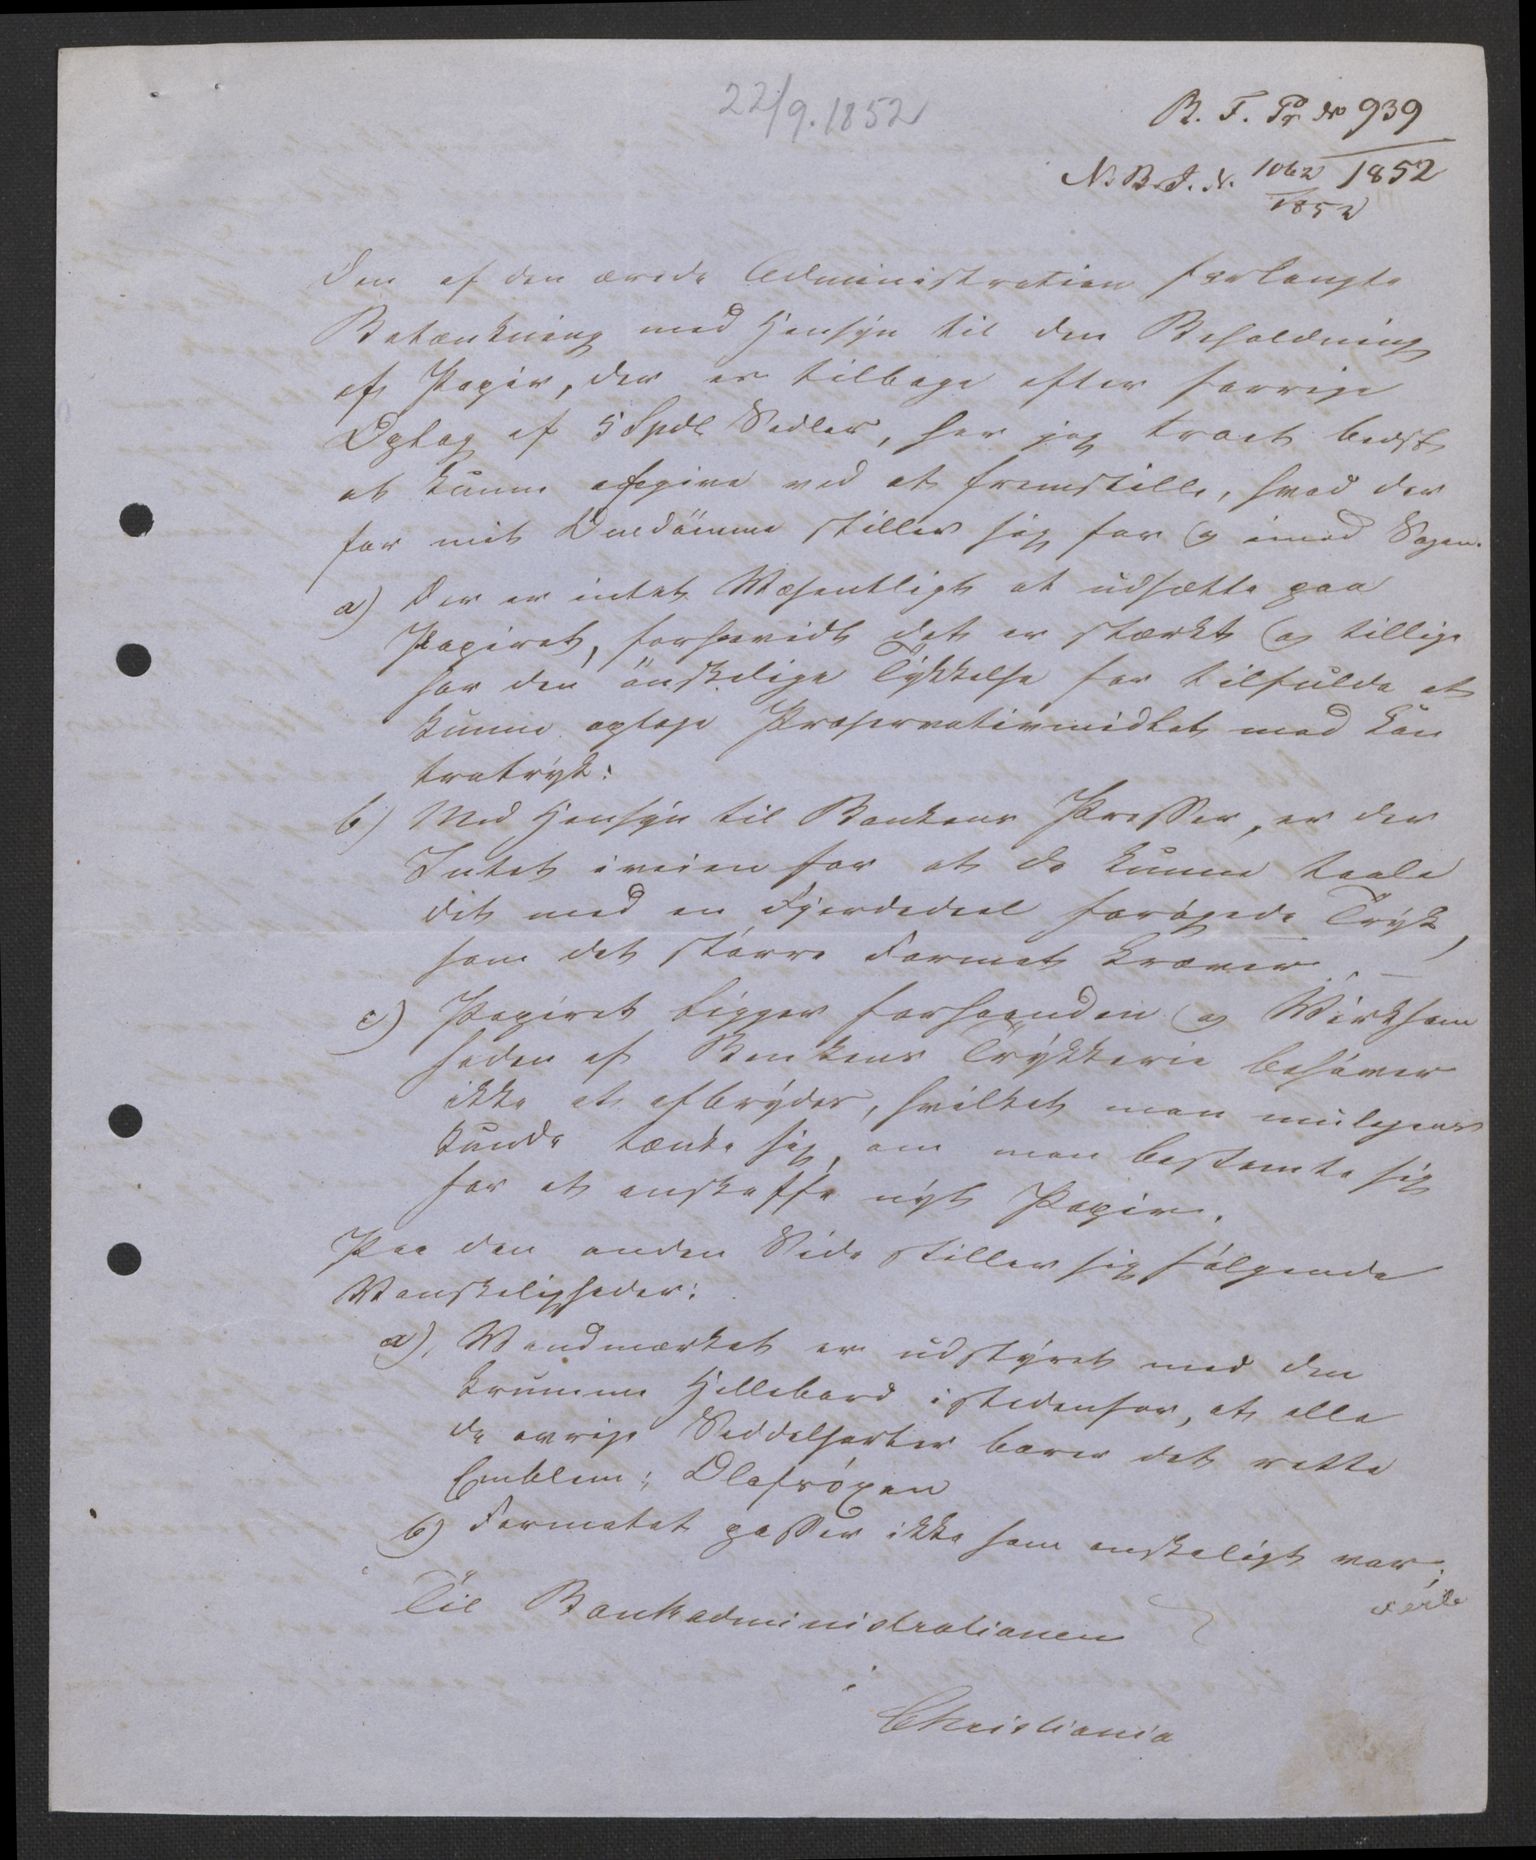 22/9. 1852
B. F. Pr No 939
1852
N. B. J. N. 1062
1852
Den af den ærede Administration forlangte
Betænkning med Hensyn til den Beholdning
af Papir, der er tilbage efter forrige
Oplag af 5 Spdl Sedler, har jeg troet bedst
at kunne afgive ved at fremstille, hvad der
for mit Omdömme stiller sig for og imod Sagen.
a) Der er intet Wæsentligt at udsætte paa
Papiret, forsaavidt det er stærkt og tillige
har den önskelige Tÿkkelse for tilfulde at
kunne optage Præservativmidlet mod Con
tratrÿk:
b) Med Hensyn til Bankens Presser, er der
Intet iveien for at de kunne taale
det med en Fjerdedeel forøgede Trÿk,
som det större Format kræver. —
c) Papiret ligger forhaanden og Wirksom
heden af Bankens Trÿkkerie behöver
ikke at afbrÿdes, hvilket man muligens
kunde tænke sig, om man bestemte sig
for at anskaffe nÿt Papir.
Paa den anden Side stiller sig følgende
Vanskeligheder:
a), Vandmærket er udstÿret med den
krumme Hellebard istedenfor, at alle
de øvrige Seddelsorter bærer det rette
Emblem: Olafsøxen
b) Formatet passer ikke som ønskeligt var;
Til Bankadministrationen
Christiania